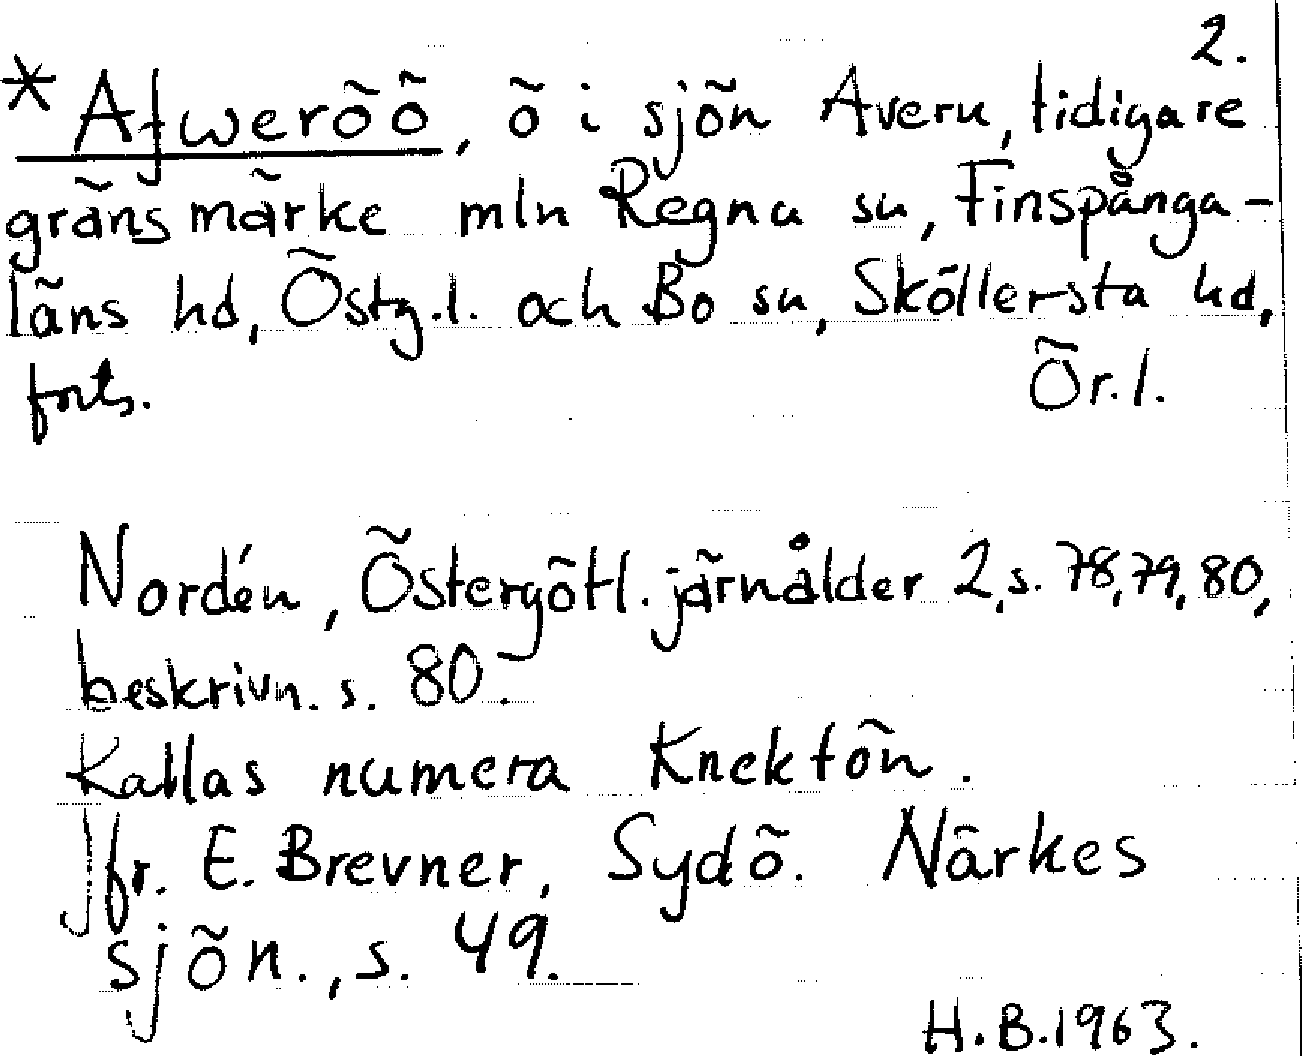 2.
* Afweröö, ö i sjön Avern, tidigare
gränsmärke mln Regna sn, Finspånga-
läns hd, Östg.l. och Bo sn, Sköllersta hd,
forts. Ör.l.
Nordén, Östergötl. järnålder 2, s. 78, 79, 80,
beskrivn. s. 80.
Kallas numera Knektön.
Jfr. E. Brevner, Sydö. Närkes
sjön., s. 49.
H.B. 1963.